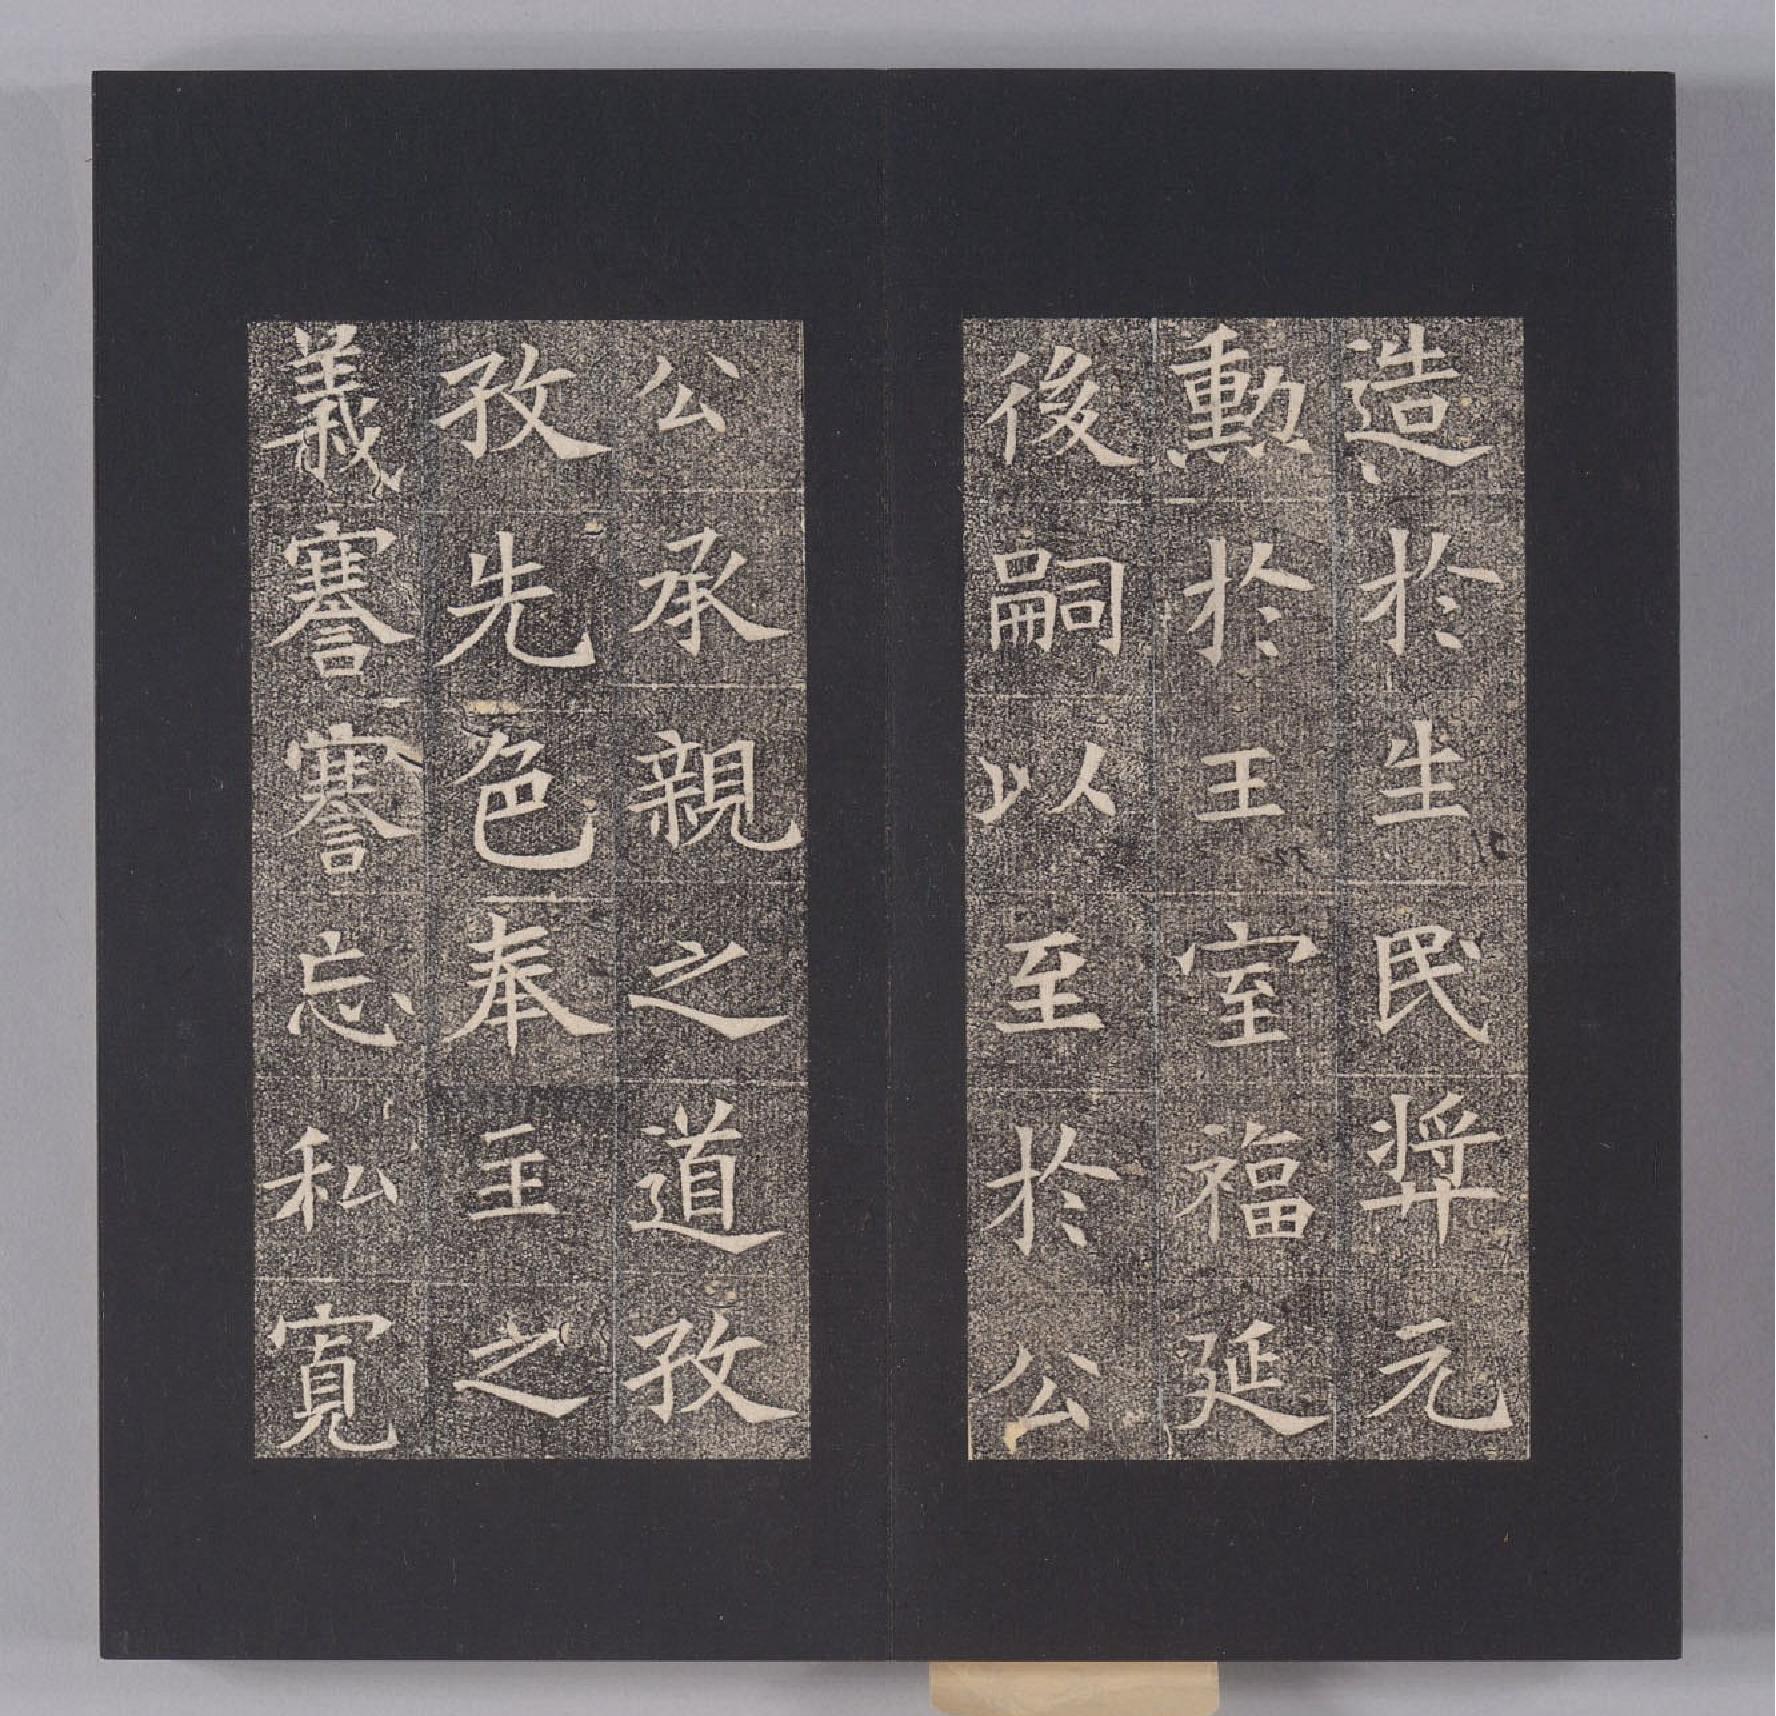 造於生民奨元
勲於王室福延
後嗣以至於公
公承親之道孜
孜先色奉主之
義謇謇忘私寛